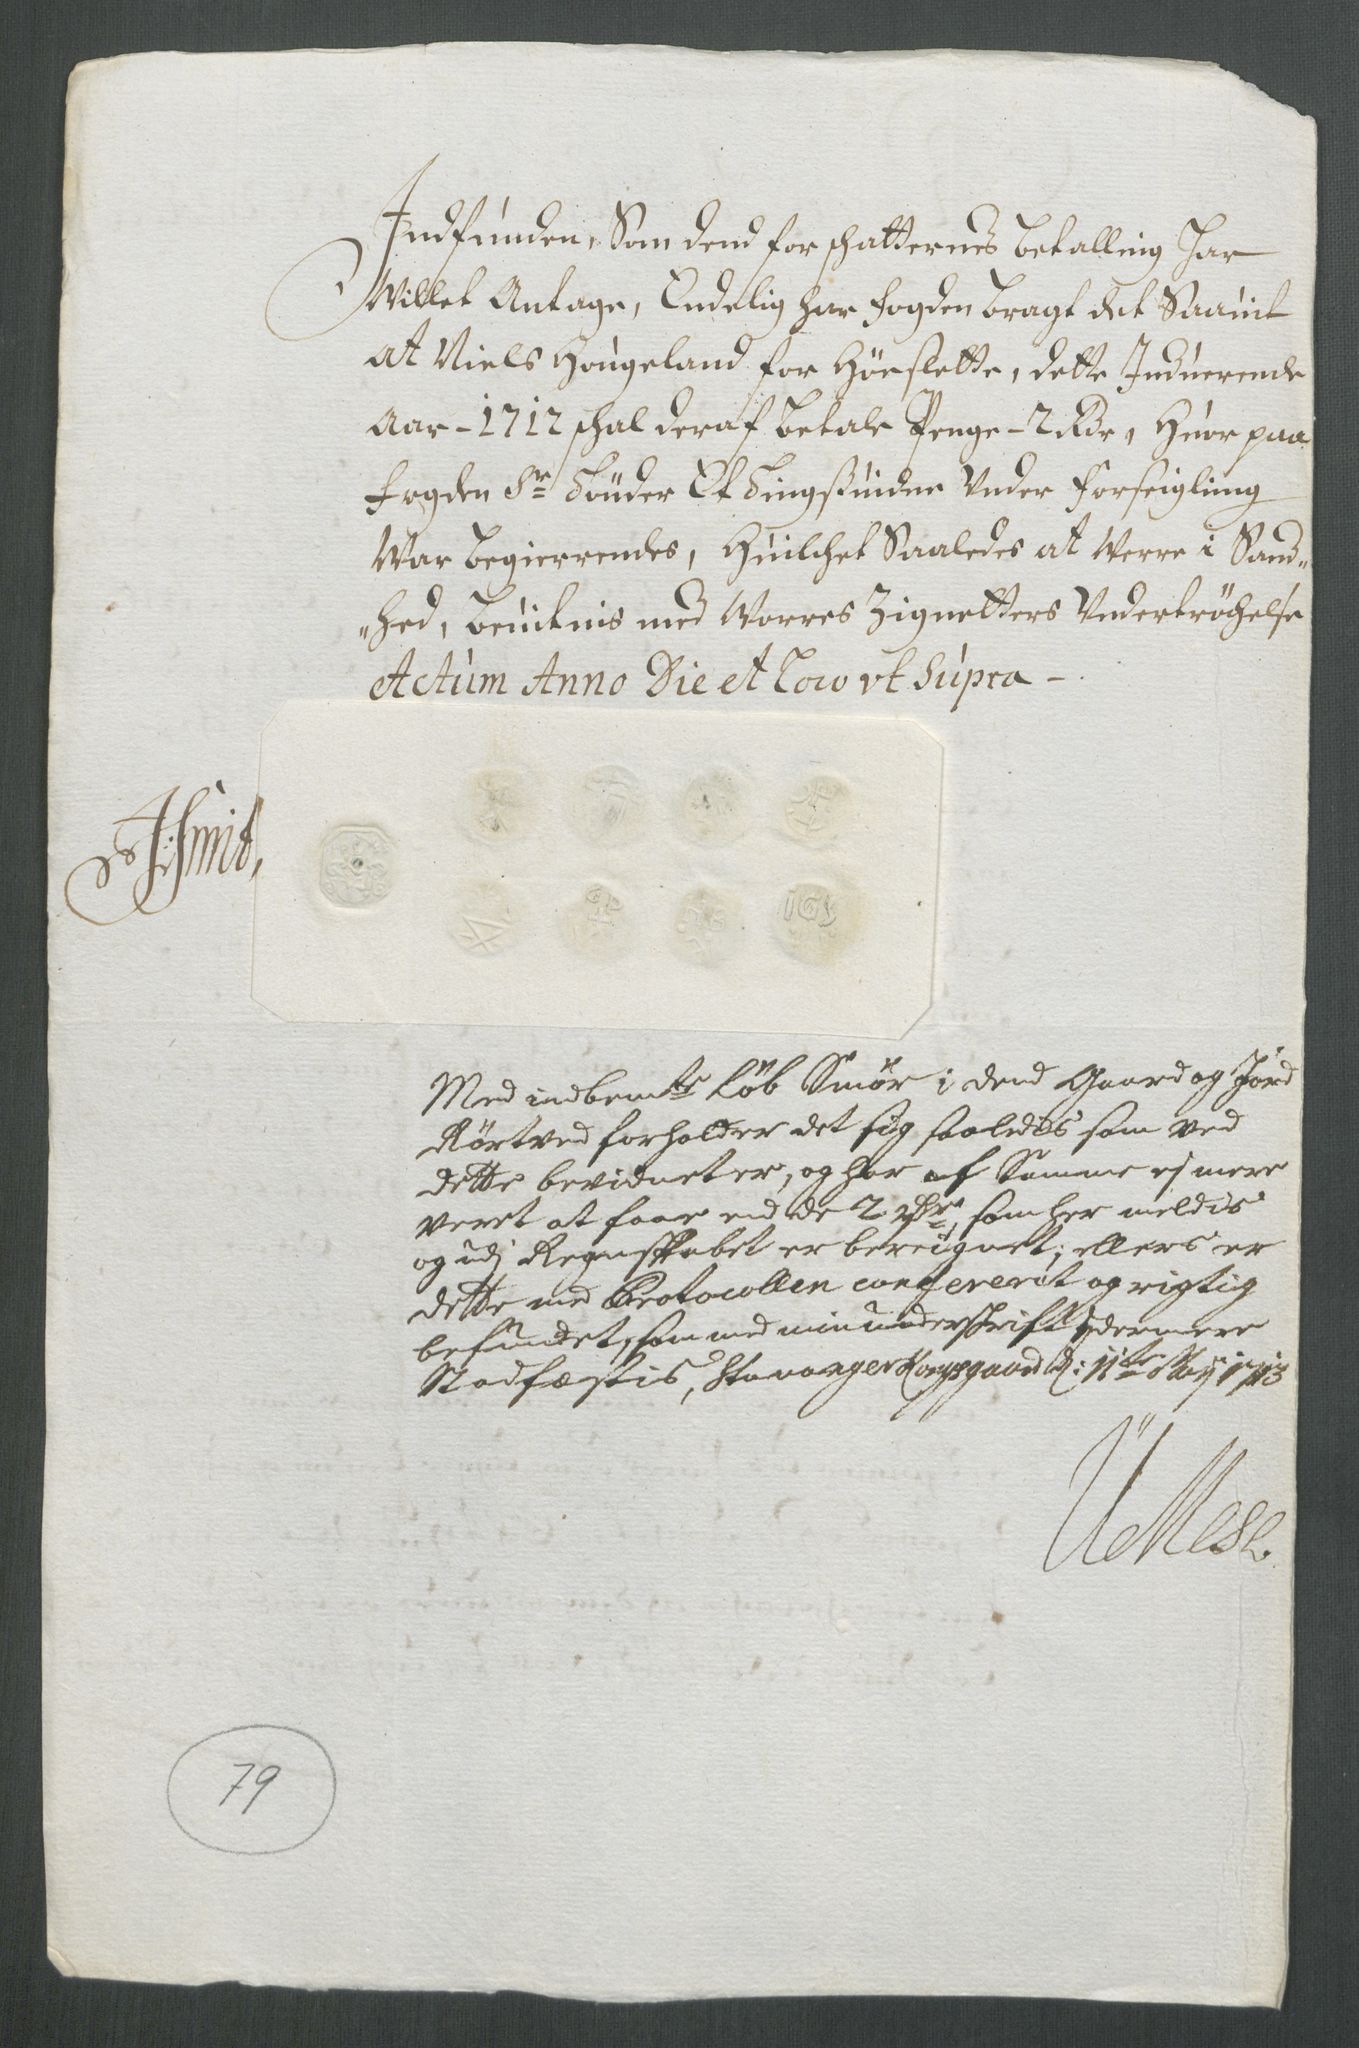 Indfunden, Som dend for schatternes betalling har
Willet Antage, Endelig har fogden bragt det Saauit
at Niels Hougeland for Höeslette, dette Induerende
Aar - 1712 schal deraf betale Penge - 2 Rdr, Huor paa
fogden Sr Tönder Et Tingsuidne Vnder forseigling
War begierrendes, Huilchet Saaledes at Werre i Sand„
„hed, beuitnis med Worres Zignetters Vndertröchelse
Actum Anno Die et Loco vt Supra -
J: Smit,
Med indbemte Löb Smör i dend Gaard og Jord
Rörtved forholder det sig saaledes som ved
dette bevidnet er, og har af Samme ej mere
veret at faae end de 2 Rdr, som her meldes
og udj Regnskabet er beregnet; ellers er
dette med Protocollen confererit og rigtig
befundet, som med min underschrift ydermere
Stadfæstis, Stavanger Kongsgaard d: 11te Maij 1713
79